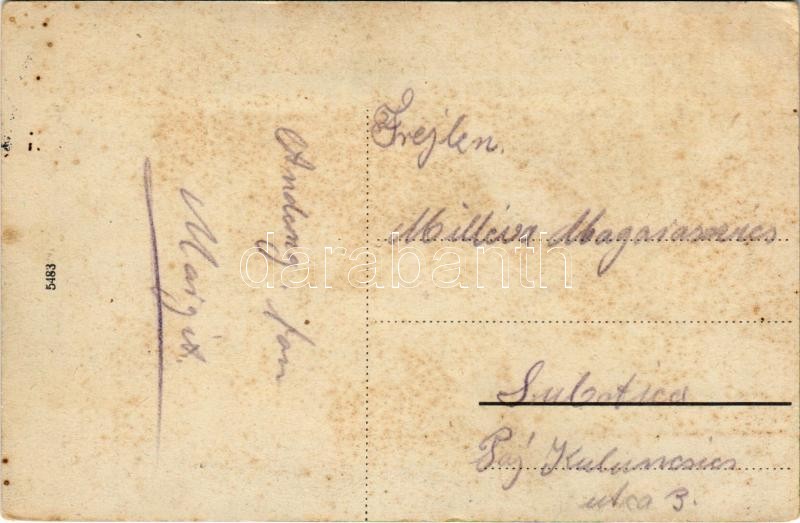 Andeng. fon
Margit.
5483
Frejlen.
Milleva Magarasevics
Subotica
Páj Kuluncsics
utca 3.
darabanth